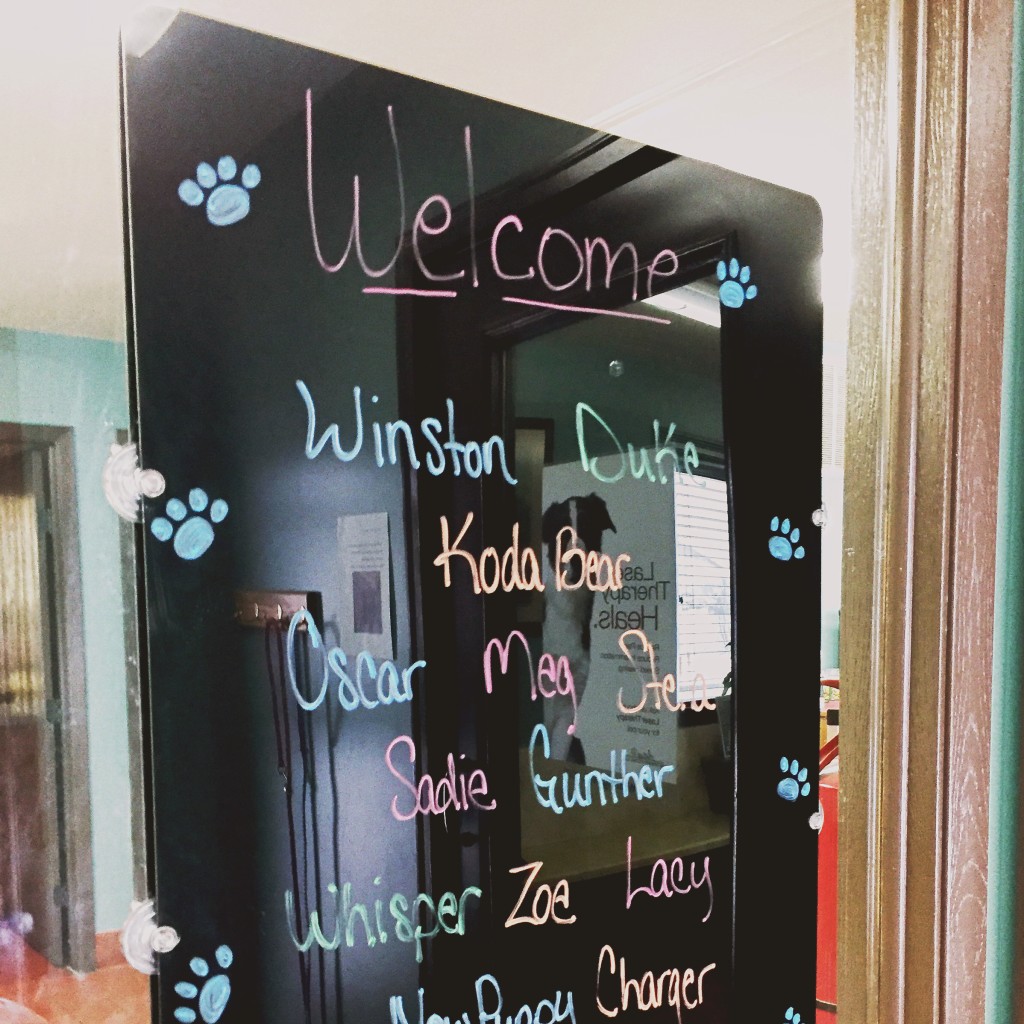 Welcome
Winston Duke
Koda Bear
Oscar Meg Stela
Sadie Gunther
Whisper Zoe Lacy
New Puppy Charger
Laser
Therapy
Heals.